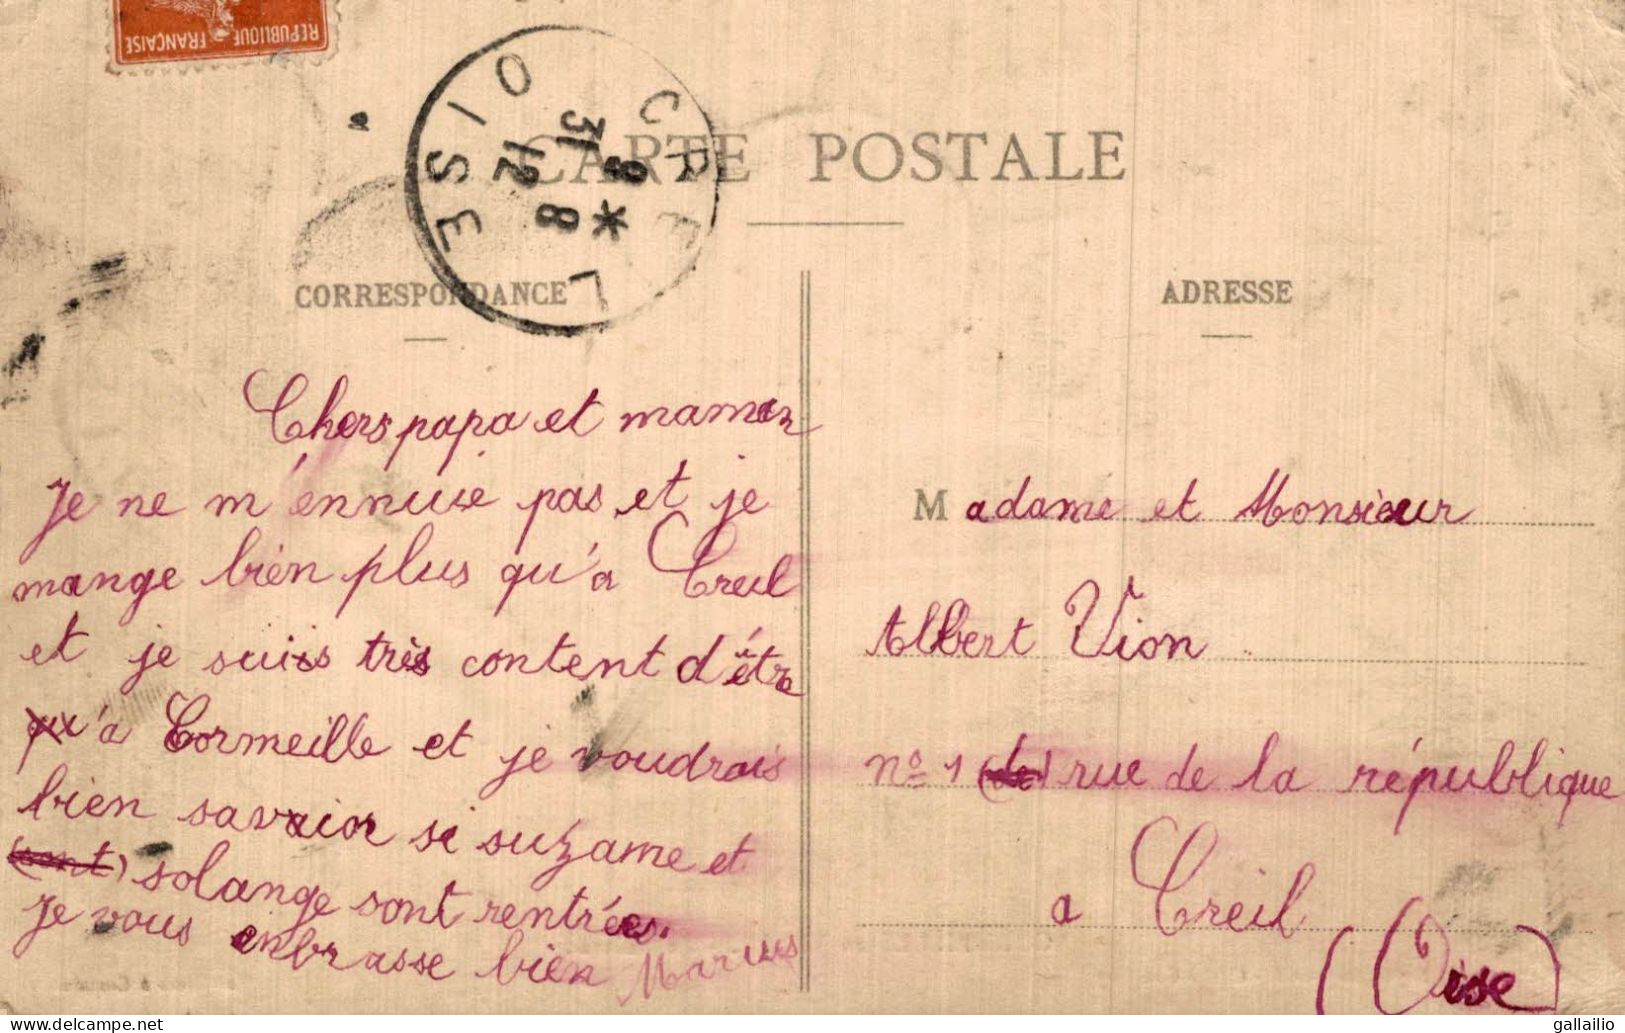 REPUBLIQUE FRANÇAISE
CREIL
31 8
12 8
*
OISE
CARTE POSTALE
CORRESPONDANCE
ADRESSE
Chers papa et maman
Je ne m'ennuie pas et je
mange bien plus qu'a Creil
et je suis très content d'étre
qu'a Cormeille et je voudrais
bien savoir si suzame et
(sont) solange sont rentrées.
Je vous enbrasse bien Marius
Madame et Monsieur
Albert Vion
no 1 (de) rue de la république
a Creil
(Oise)
gallailio
delcampe.net